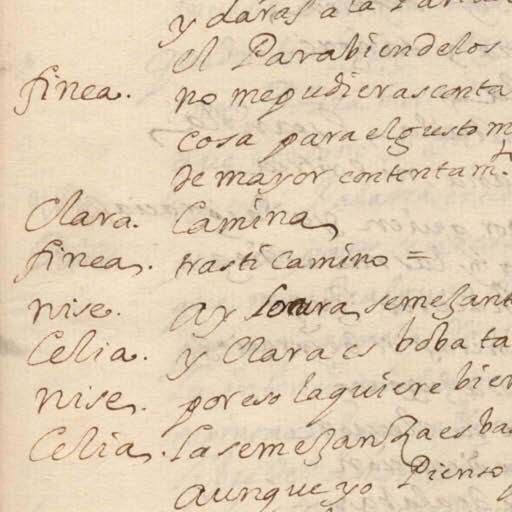 y daras a la Pari
el Parabien delos
finea. no mepudierasconta
cosa para elgusto m
de mayor contentam.to
Clara. Camina
finea. trasti Camino =
nise. ay loura semezant
Celia. y Clara es boba ta
nise. poreso laquiere bien
Celia. La semezanza es bas
aunque yo Pienso